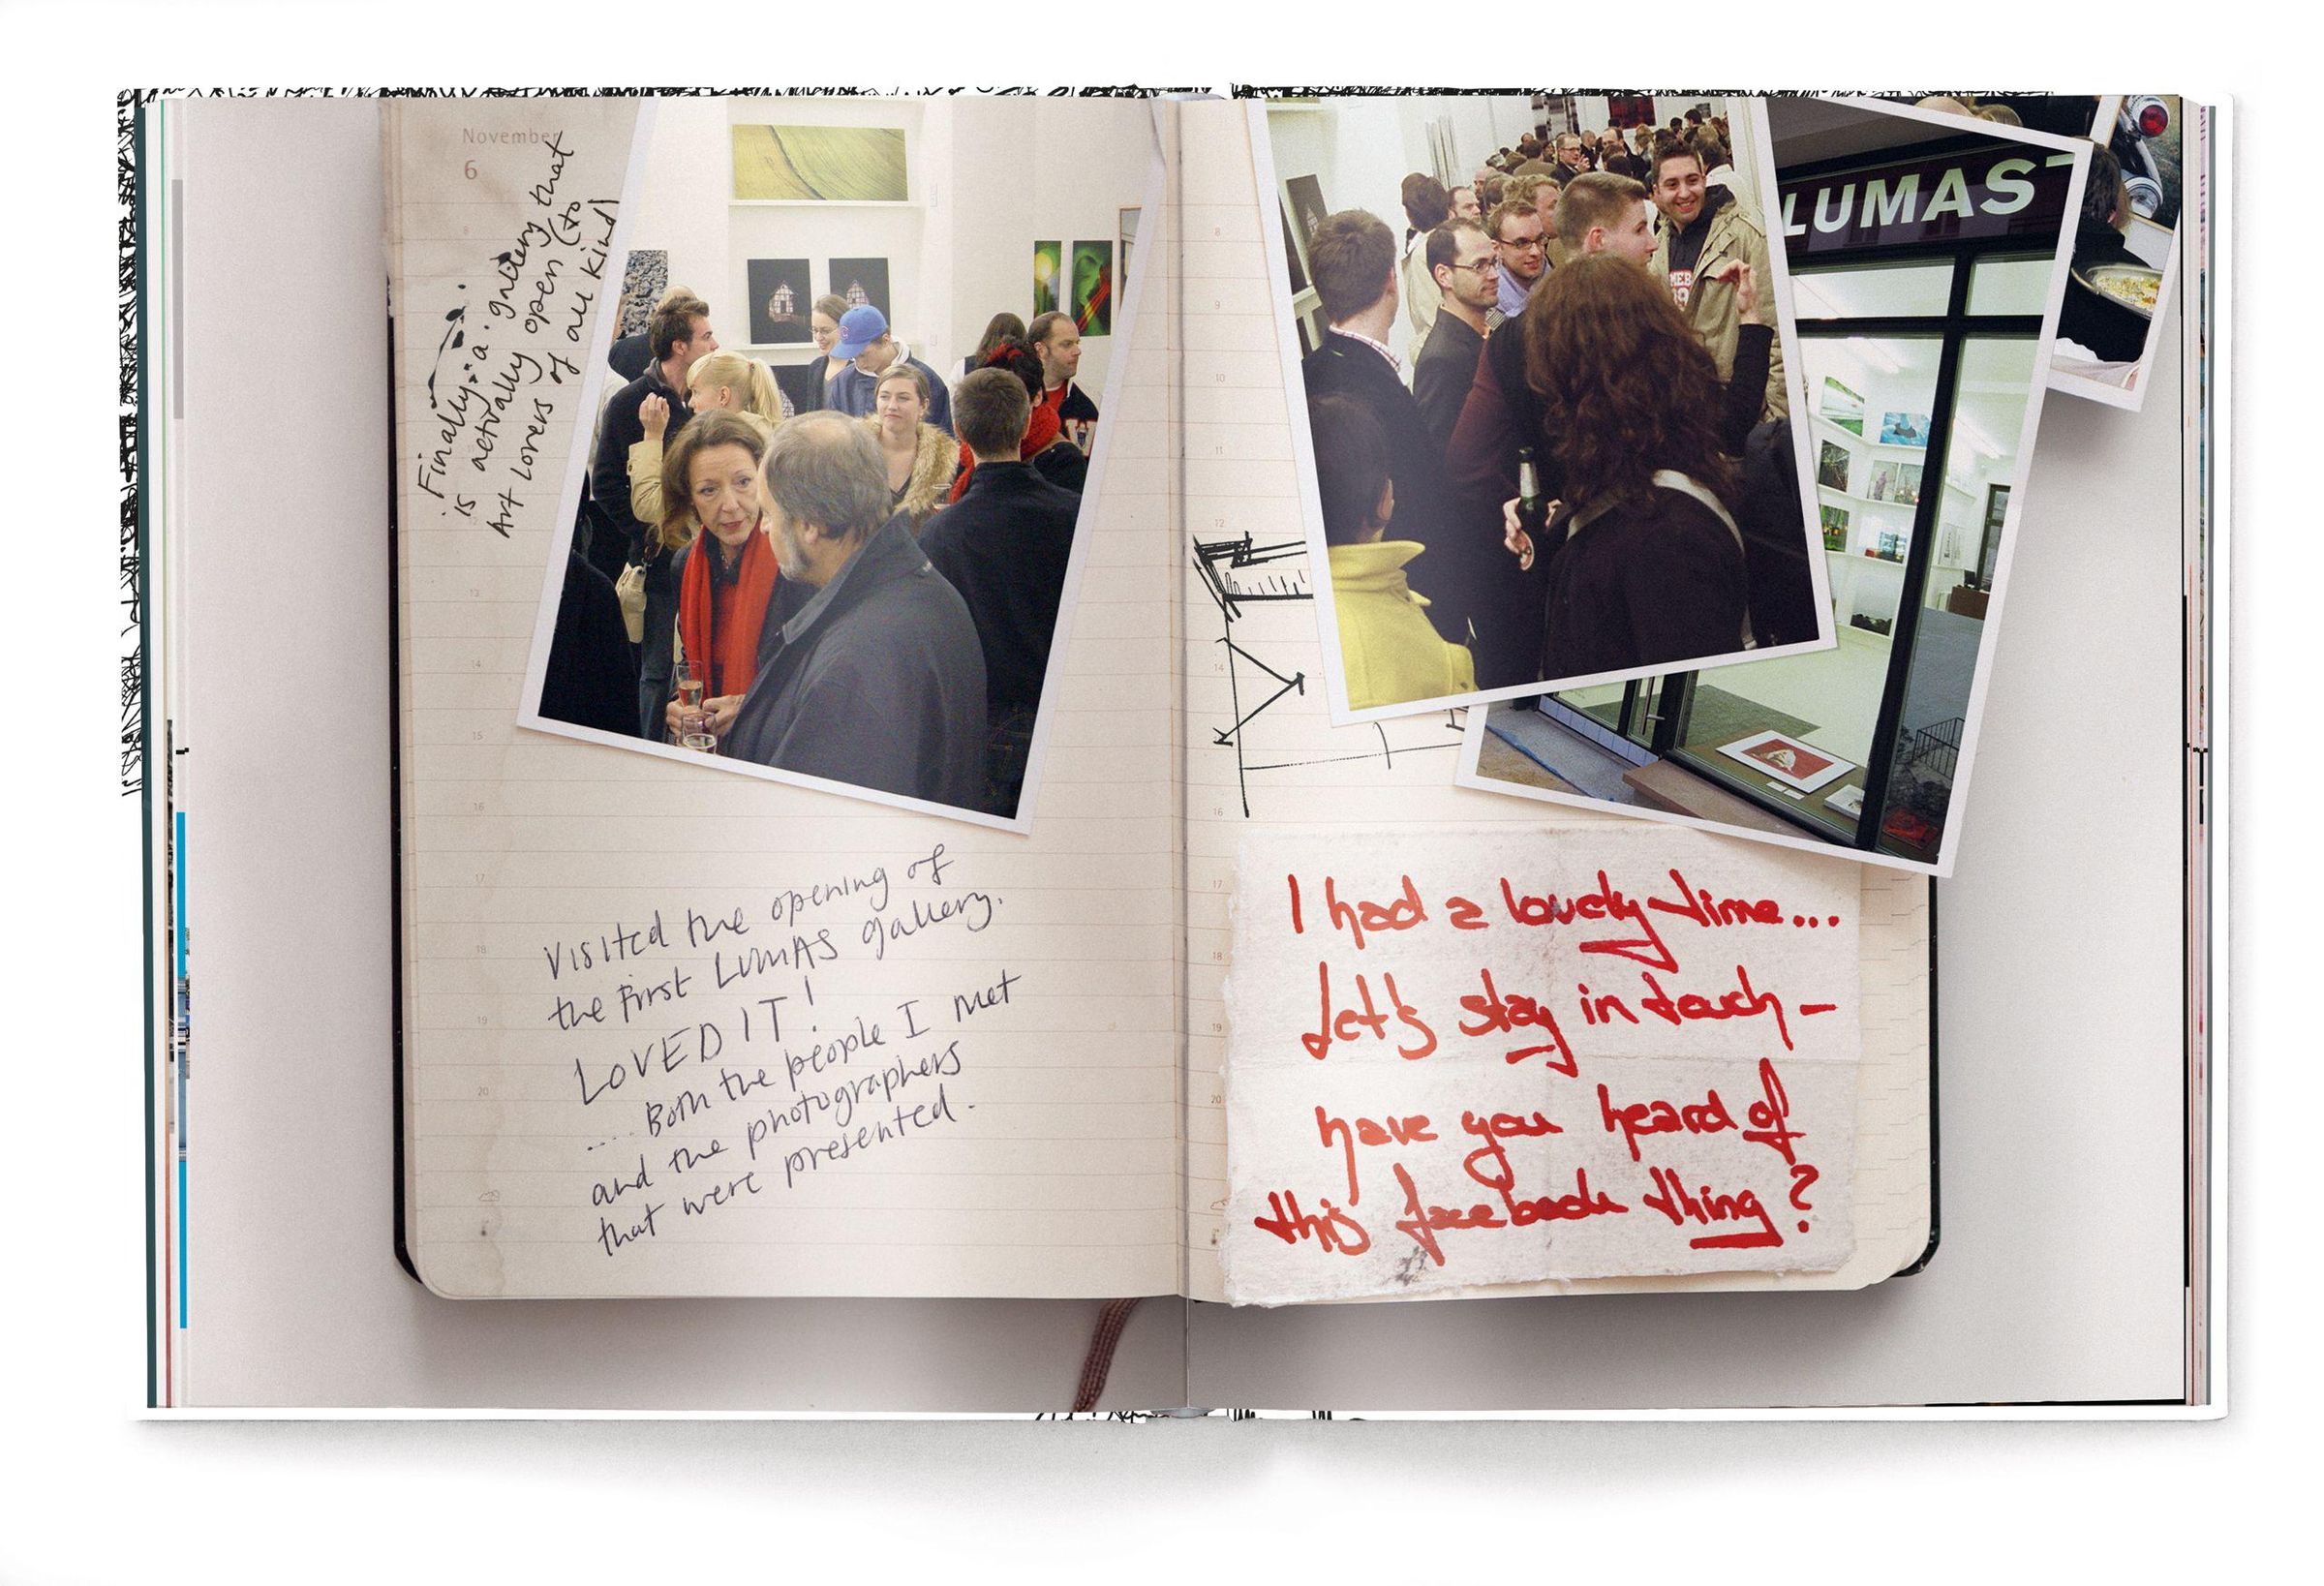 November
6
Finally, a gallery that
is actually open (to
Art lovers of all kind)
8
9
10
11
12
13
14
15
16
17
18
19
20
Visited the opening of
the first LUMAS gallery.
LOVED IT!
.... Both the people I met
and the photographers
that were presented.
8
9
10
11
12
14
16
17
18
19
20
LUMAS
I had a lovely time...
Let's stay in touch –
have you heard of
this facebook thing?